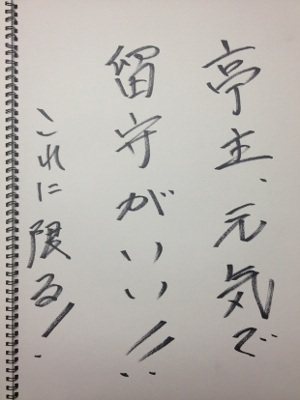 亭主、元気で
留守がいい!!
これに限る!